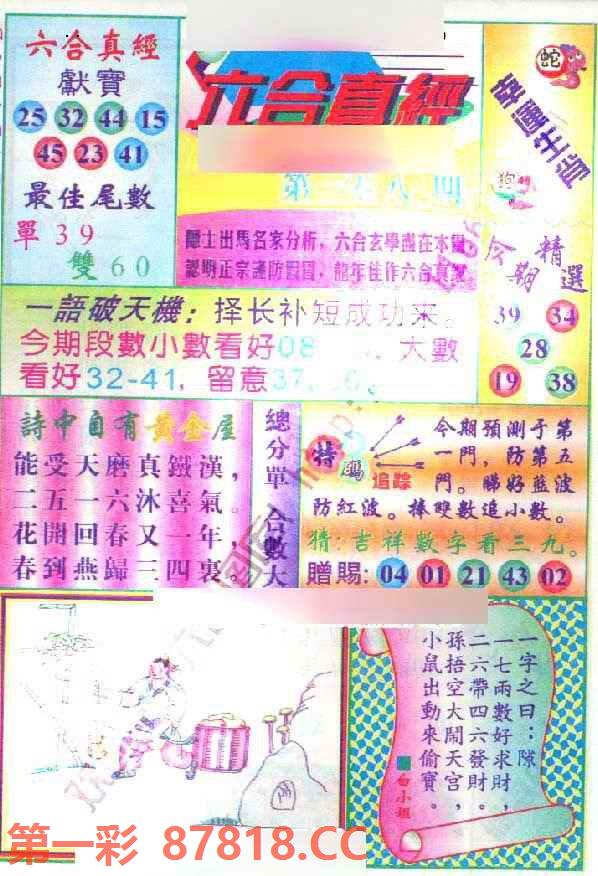 六合真經
獻寶
25 32 44 15
45 23 41
最佳尾數
單39
雙60
六合真經
第
八期
幸運生肖
蛇
狗
隱士出馬名家分析，六合玄學盡在本圖
認明正宗謹防假冒，龍年佳作六合真經
今期精選
39 34
28
19 38
一語破天機：择长补短成功来。
今期段數小數看好08
大數
看好32-41，留意37
詩中自有黃金屋
能受天磨真鐵漢，
二五一六沐喜氣。
花開回春又一年，
春到燕歸三四裏。
總分單 合數大
特碼追踪
今期預測于第
一門，防第五
門。睇好藍波
防紅波。捧雙數追小數。
猜：吉祥數字看三九。
贈賜：04 01 21 43 02
一字之曰：隙
一七兩數好求財，
二六帶四六發財。
孫悟空大鬧天宮，
小鼠出動來偷寶。
白小姐
第一彩 87818.CC